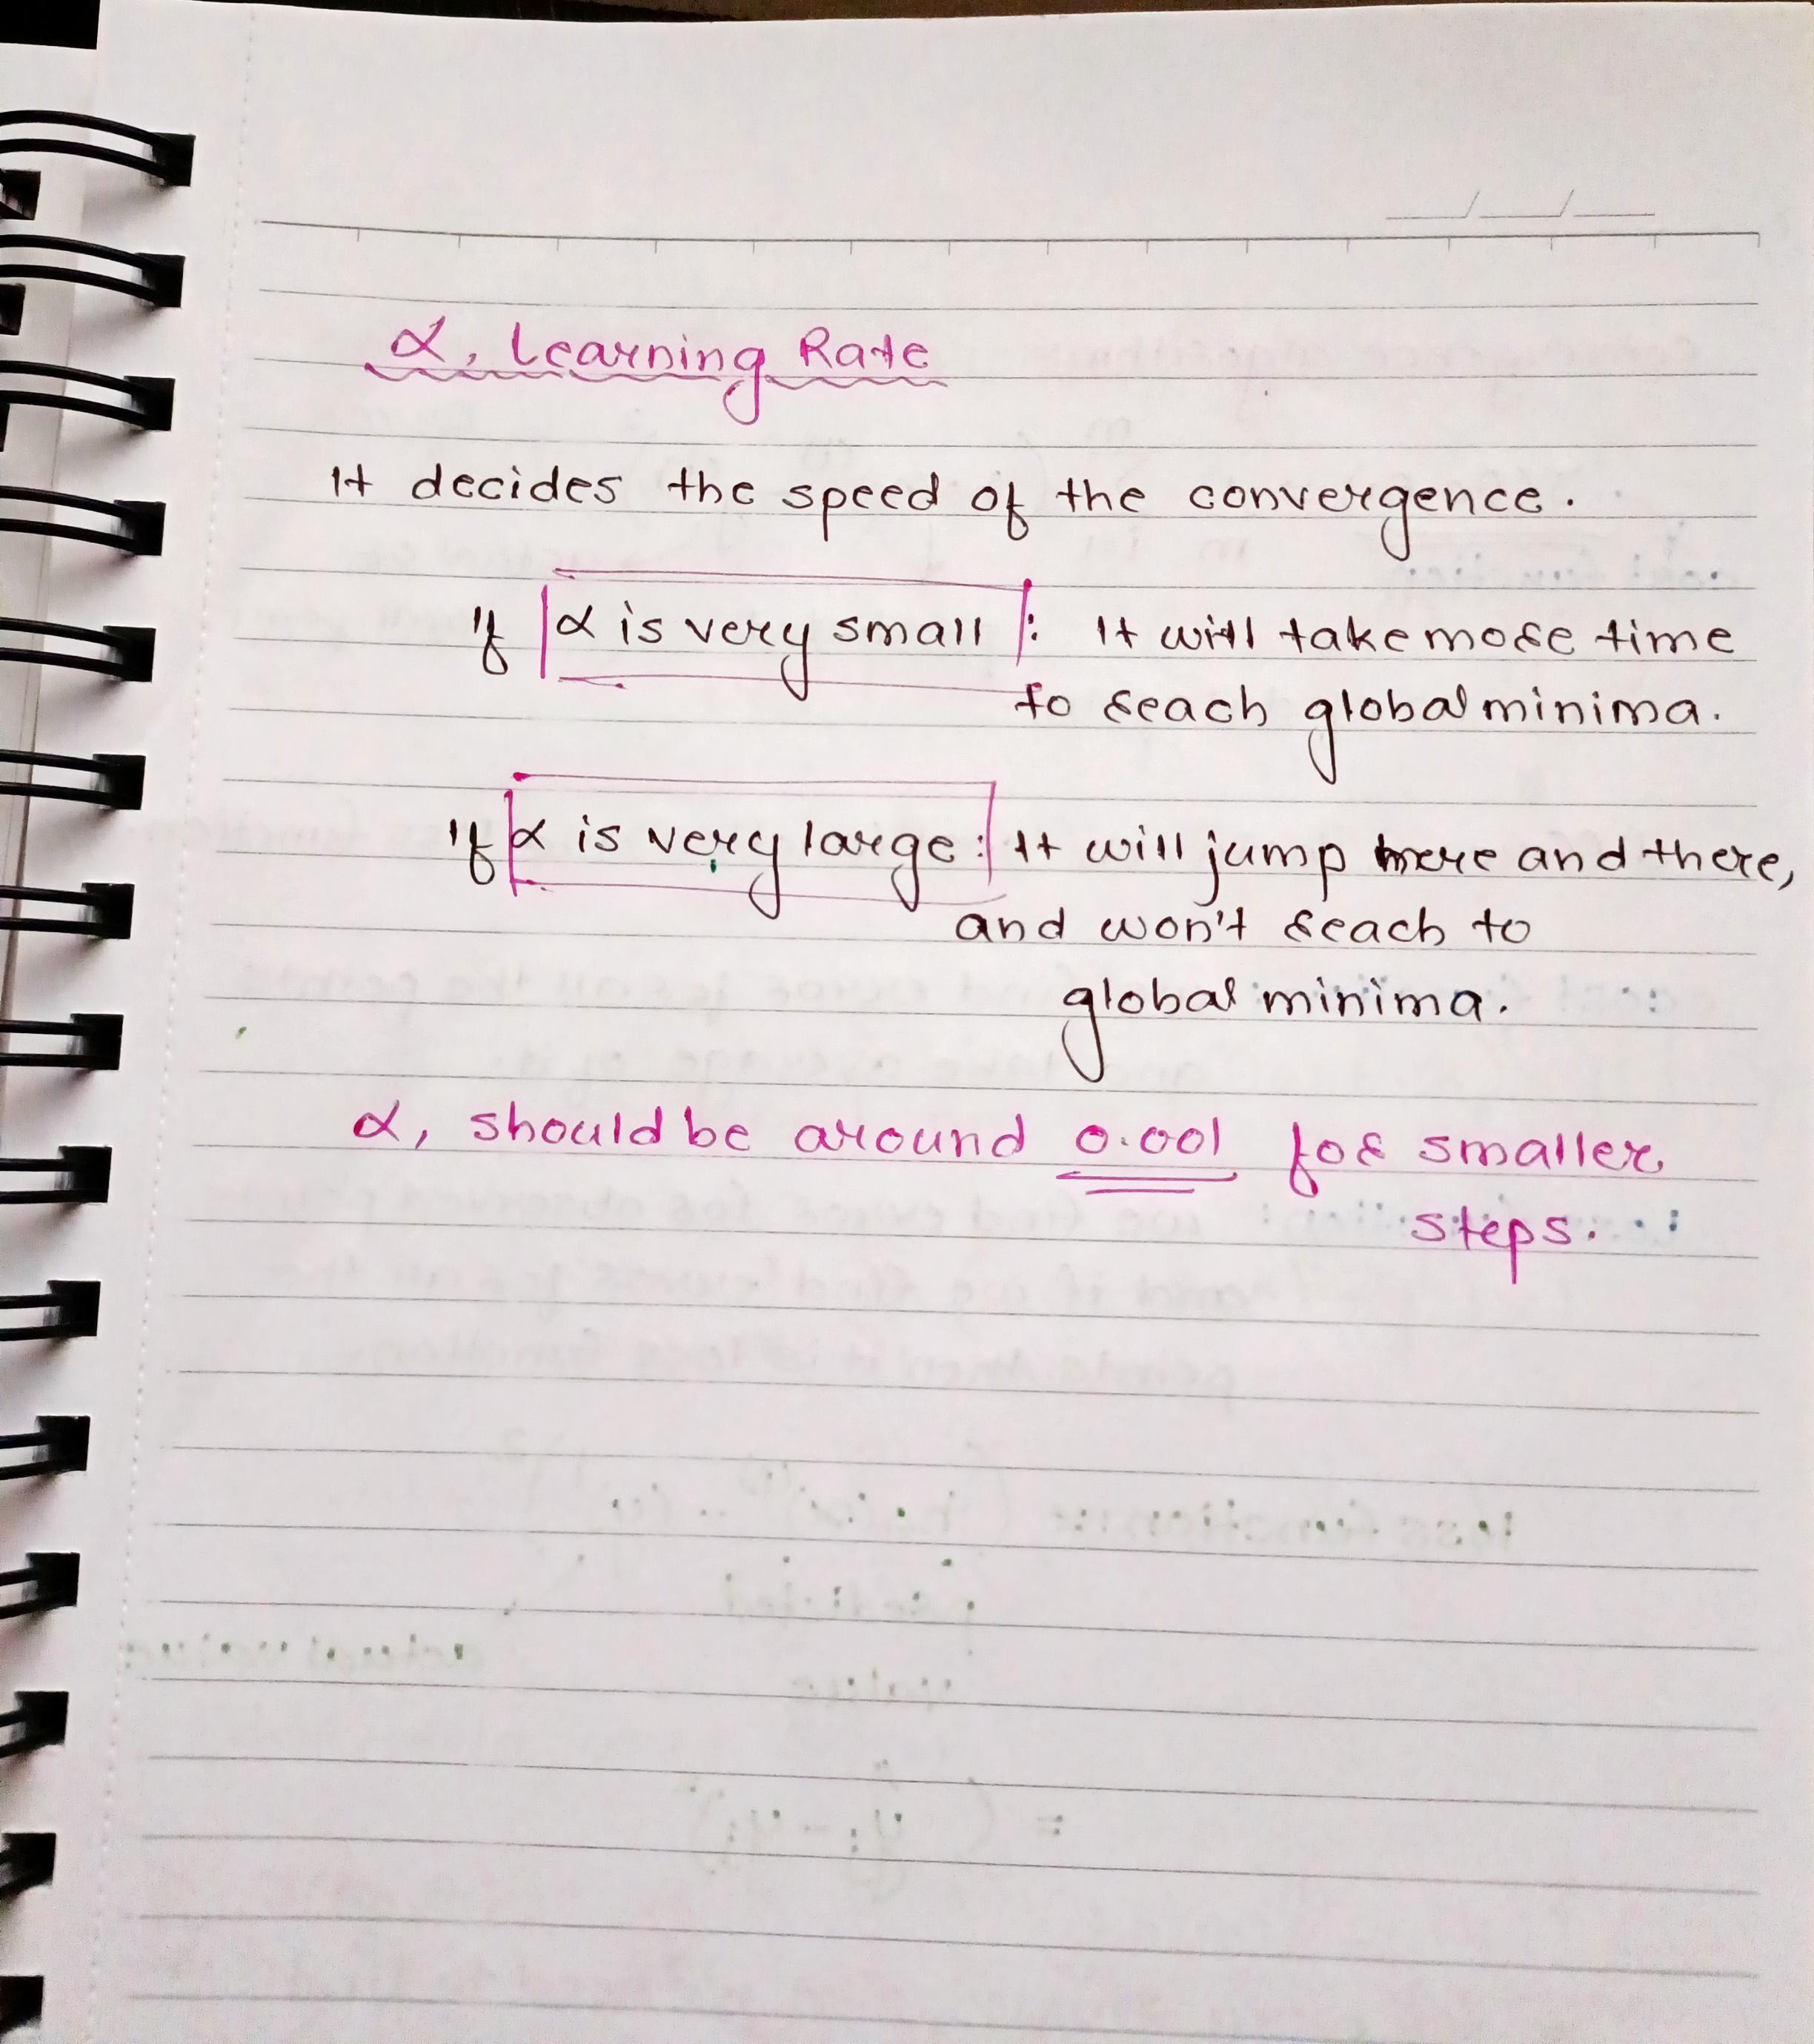 α, Learning Rate
It decides the speed of the convergence.
If α is very small : It will take more time
to reach global minima.
If α is very large : It will jump here and there,
and won't reach to
global minima.
α, should be around 0.001 for smaller
steps.